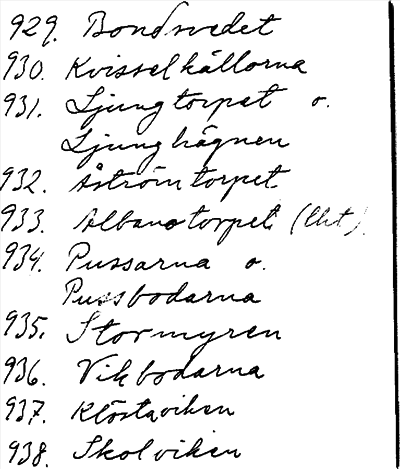 929. Bondsvedet
930. Kvisselkällorna
931. Ljungtorpet o.
Ljunghägnen
932. Åströmtorpet
933. Albanotorpet
934. Pussarna o.
Pussbodarna
935. Stormyren
936. Vikbodarna
937. Klöstaviken
938. Skolviken